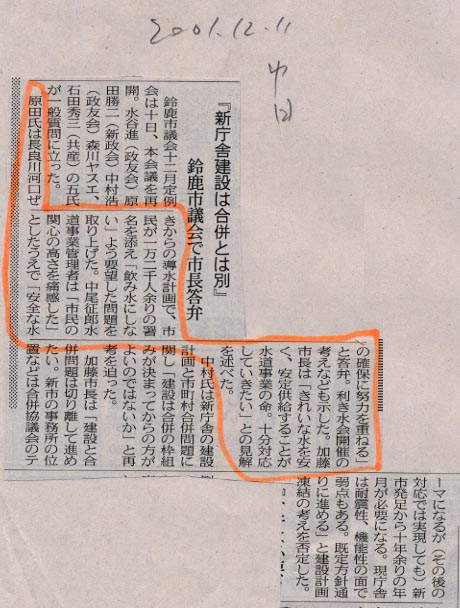 2001.12.11
中日
『新庁舎建設は合併とは別』
鈴鹿市議会で市長答弁
鈴鹿市議会十二月定例
会は十日、本会議を再
開。水谷進（政友会）原
田勝二（新政会）中村浩
（政友会）森川ヤスエ、
石田秀三（共産）の五氏
が一般質問に立った。
原田氏は長良川河口ぜ
きからの導水計画で、市
民が一万二千人余りの署
名を添え「飲み水にしな
い」よう要望した問題を
取り上げた。中尾征郎水
道事業管理者は「市民の
関心の高さを痛感した」
としたうえで「安全な水
の確保に努力を重ねる」
と答弁。利き水会開催の
考えなども示した。加藤
市長は「きれいな水を安
く、安定供給することが
水道事業の命。十分対応
していきたい」との見解
を述べた。
中村氏は新庁舎の建設
計画と市町村合併問題に
関し「建設は合併の枠組
みが決まってからの方が
よいのではないか」と再
考を迫った。
加藤市長は「建設と合
併問題は切り離して進め
たい。新市の事務所の位
置などは合併協議会のテ
ーマになるが（その後の
対応では実現しても）新
市発足から十年余りの年
月が必要になる。現庁舎
は耐震性、機能性の面で
弱点もある。既定方針通
りに進める」と建設計画
凍結の考えを否定した。